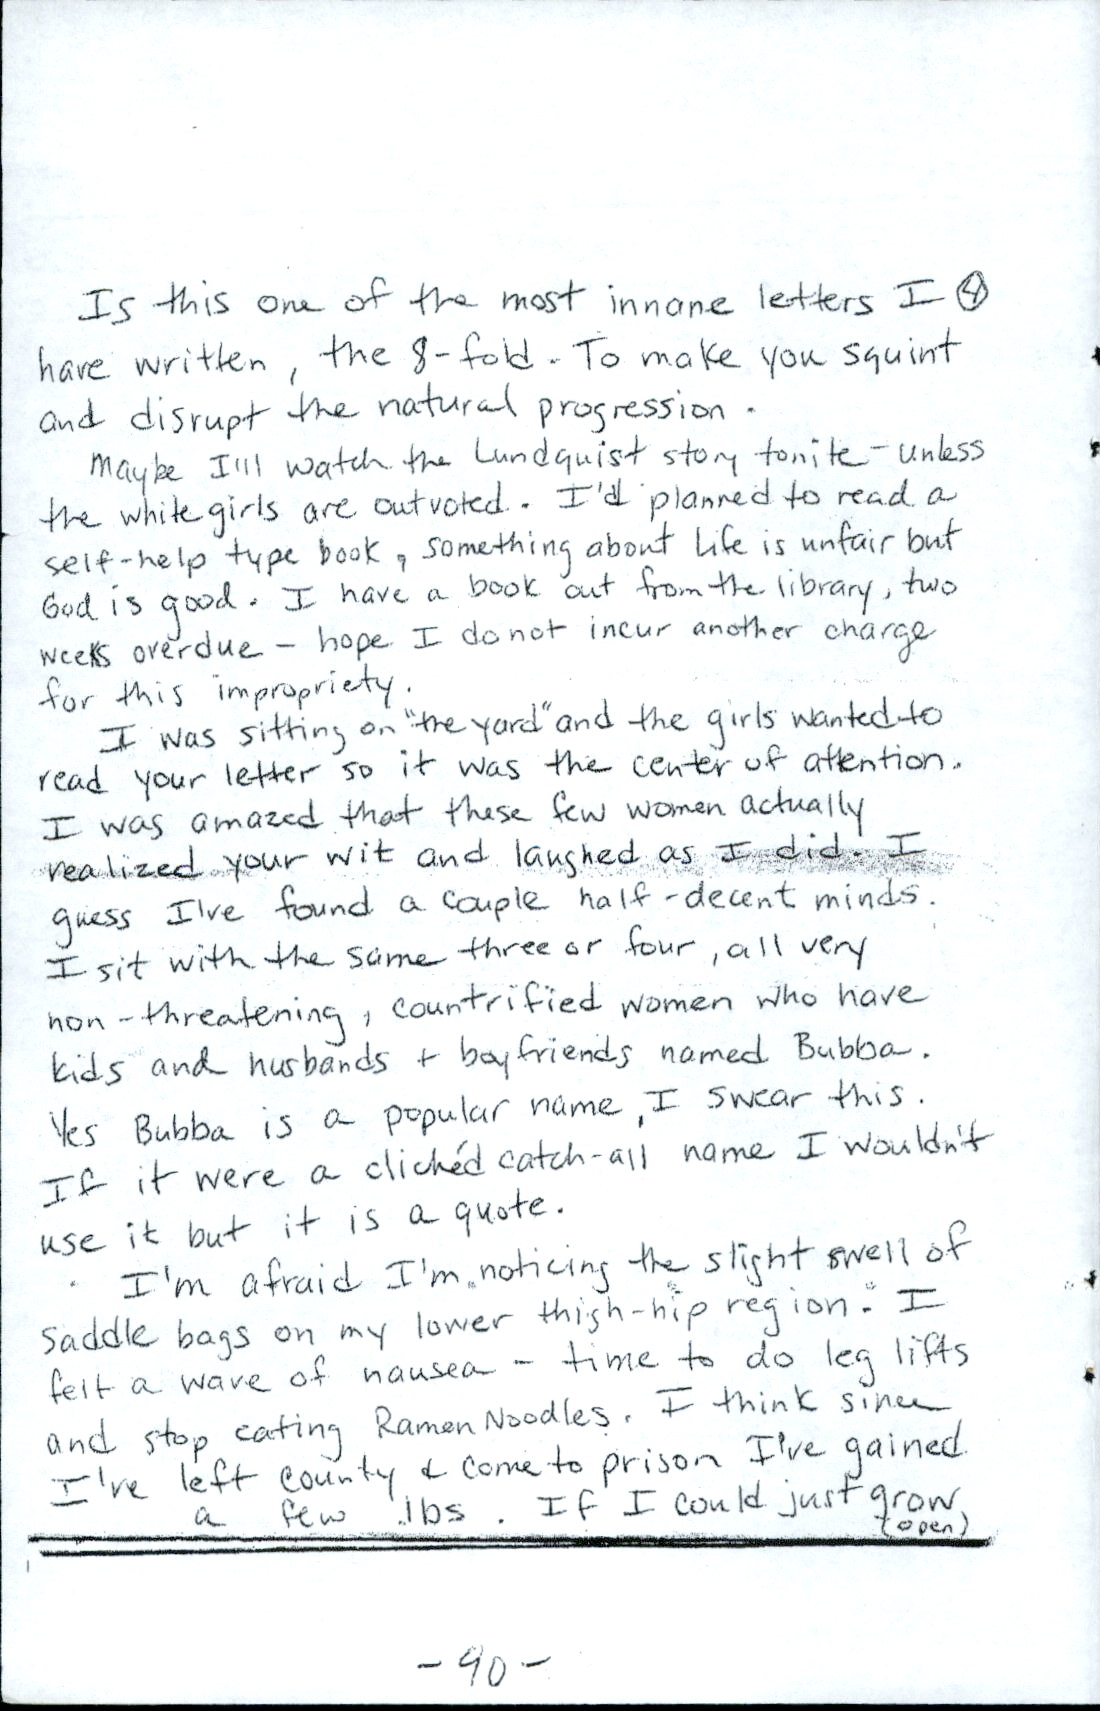 Is this one of the most innane letters I ④
have written, the 8-fold. To make you squint
and disrupt the natural progression.
Maybe I'll watch the Lundquist story tonite - unless
the white girls are outvoted. I'd planned to read a
self-help type book, something about Life is unfair but
God is good. I have a book out from the library, two
weeks overdue - hope I do not incur another charge
for this impropriety.
I was sitting on "the yard" and the girls wanted to
read your letter so it was the center of attention.
I was amazed that these few women actually
realized your wit and laughed as I did. I
guess I've found a couple half-decent minds.
I sit with the same three or four, all very
non-threatening, countrified women who have
kids and husbands + boyfriends named Bubba.
Yes Bubba is a popular name, I swear this.
If it were a clichéd catch-all name I wouldn't
use it but it is a quote.
I'm afraid I'm noticing the slight swell of
saddle bags on my lower thigh-hip region. I
felt a wave of nausea - time to do leg lifts
and stop eating Ramen Noodles. I think since
I've left county & come to prison I've gained
a few lbs. If I could just grow
(open)
-90-